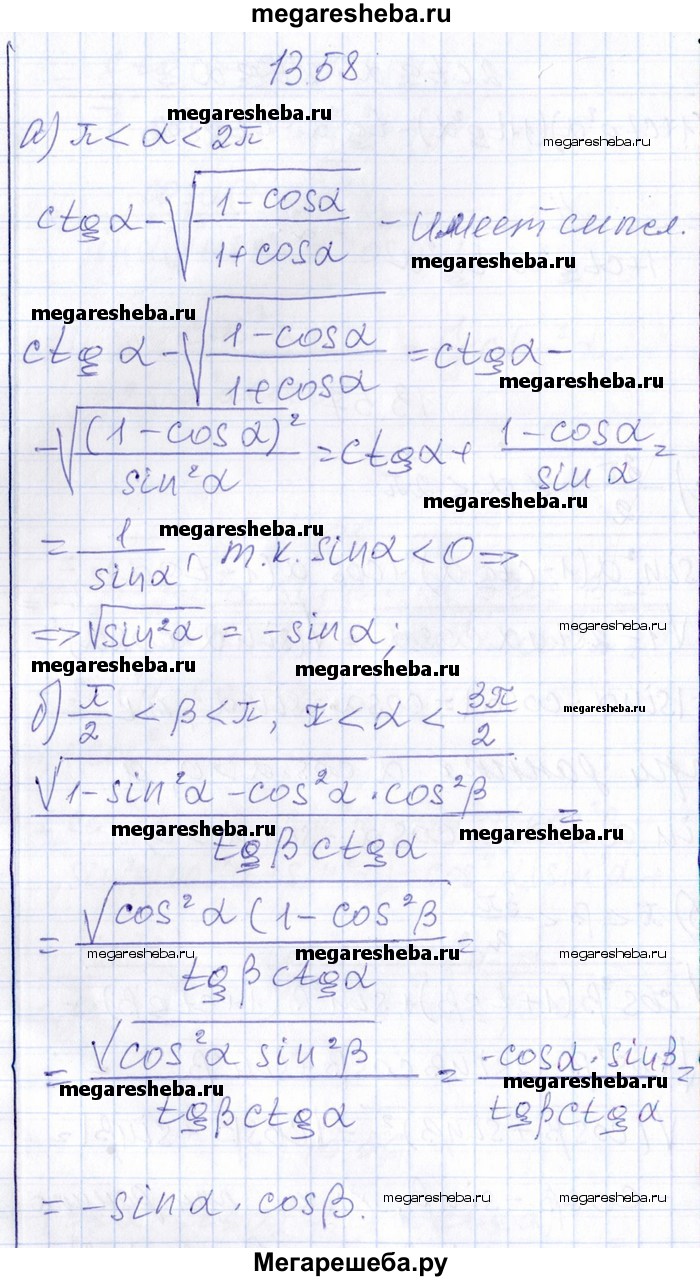 megaresheba.ru
13.58
megaresheba.ru
а) π < α < 2π
megaresheba.ru
ctg α - √((1 - cos α)/(1 + cos α)) - имеет смысл.
megaresheba.ru
megaresheba.ru
ctg α - √((1 - cos α)/(1 + cos α)) = ctg α -
megaresheba.ru
- √((1 - cos α)²/sin² α) = ctg α + (1 - cos α)/(sin α) =
megaresheba.ru
megaresheba.ru
= 1/(sin α), т.к. sin α < 0 ⇒
⇒ √(sin² α) = - sin α;
megaresheba.ru
megaresheba.ru
megaresheba.ru
б) π/2 < β < π, π < α < 3π/2
megaresheba.ru
√(1 - sin² α - cos² α · cos² β)/(tg β ctg α) =
megaresheba.ru
megaresheba.ru
= √(cos² α (1 - cos² β)/(tg β ctg α) =
megaresheba.ru
megaresheba.ru
megaresheba.ru
= √(cos² α sin² β)/(tg β ctg α) = (-cos α · sin β)/(tg β ctg α) =
megaresheba.ru
megaresheba.ru
= - sin α · cos β.
megaresheba.ru
megaresheba.ru
Мегарешеба.ру